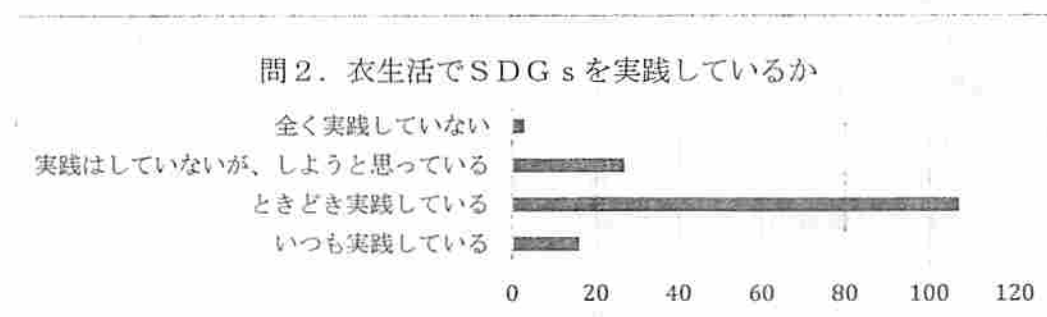 問２．衣生活でＳＤＧｓを実践しているか
全く実践していない
実践はしていないが、しようと思っている
ときどき実践している
いつも実践している
0 20 40 60 80 100 120